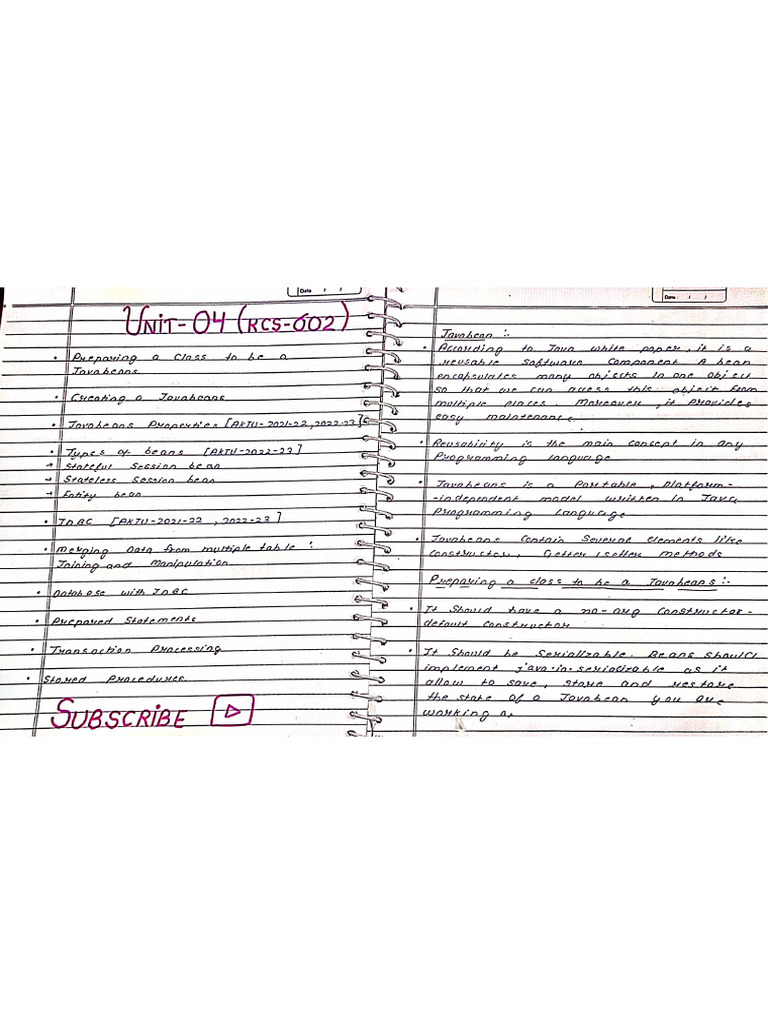 Date / /
UNIT-04 (KCS-602)
• Preparing a class to be a
Javabeans
• Creating a Javabeans
• Javabeans Properties [AKTU-2021-22, 2022-23]
• Types of beans [AKTU-2022-23]
→ Stateful Session bean
→ Stateless Session bean
→ Entity bean
• JDBC [AKTU-2021-22, 2022-23]
• Merging Data from multiple table :
Joining and Manipulation
• Database with JDBC
• Prepared Statements
• Transaction Processing
• Stored Procedures
SUBSCRIBE
Date / /
Javabean :-
• According to Java white paper, it is a
reusable Software Component A bean
encapsulates many objects in one object
so that we can access this object from
multiple places. Moreover, it provides
easy maintenance.
• Reusability is the main concept in any
Programming language
• Javabeans is a Portable, Platform-
-independent model written in Java
Programming Language
• Javabeans Contain Several elements like
Constructors, Getter/setter methods
Preparing a class to be a Javabeans :-
• It Should have a no-arg Constructor-
default constructor
• It Should be Serializable. Beans should
implement java.io.serializable as it
allow to save, store and restore
the state of a Javabean you are
working